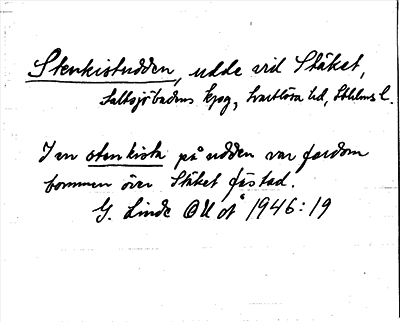 Stenkistudden, udde vid Stäket,
Saltsjöbadens kpg, Svartlösa hd, Sthlms l.
I en stenkista på udden var fordom
bommen över Stäket fästad.
G. Linde 1946:19